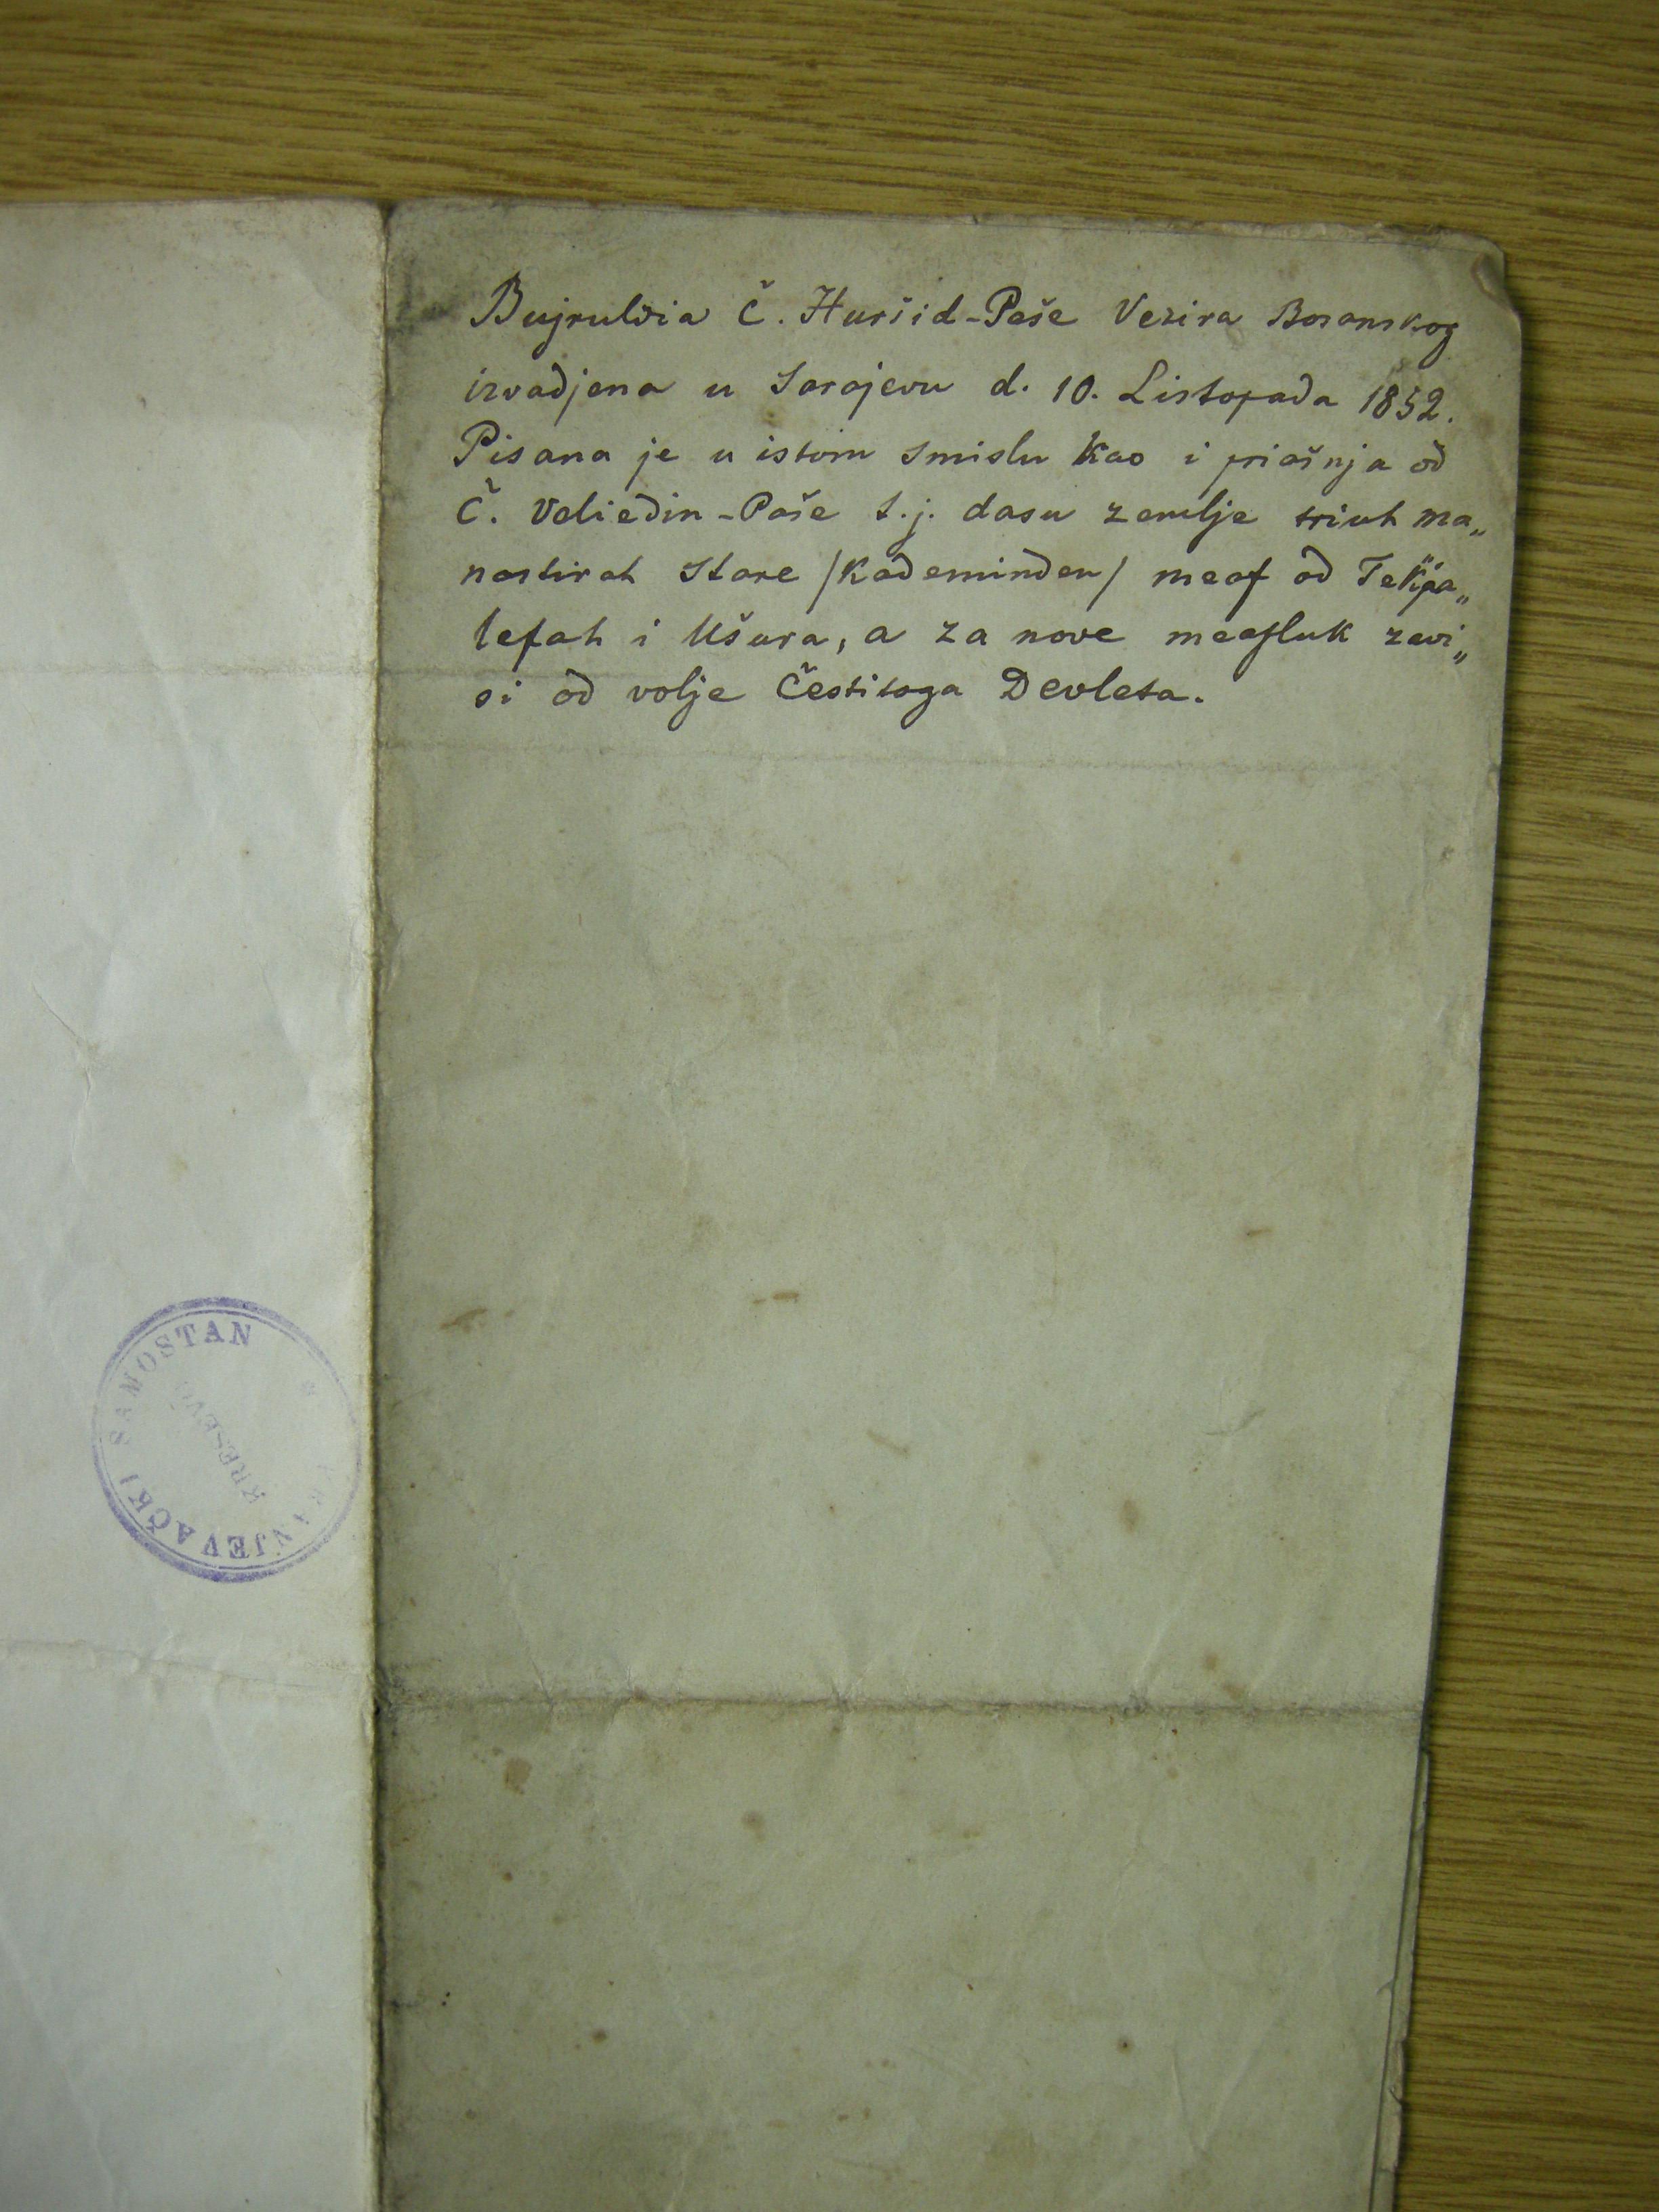 Bujruldia Č. Huršid-Paše Vezira Bosanskog
izvadjena u Sarajevu d. 10. Listopada 1852.
Pisana je u istom smislu kao i priašnja od
Č. Veliedin-Paše t.j. dasu zemlje triuh ma„
nastirah stare /Kademinden/ meaf od Tekja„
lefah i Ušura, a za nove meafluk zavi„
si od volje Čestitoga Devleta.
SAMOSTAN
KREŠEVO